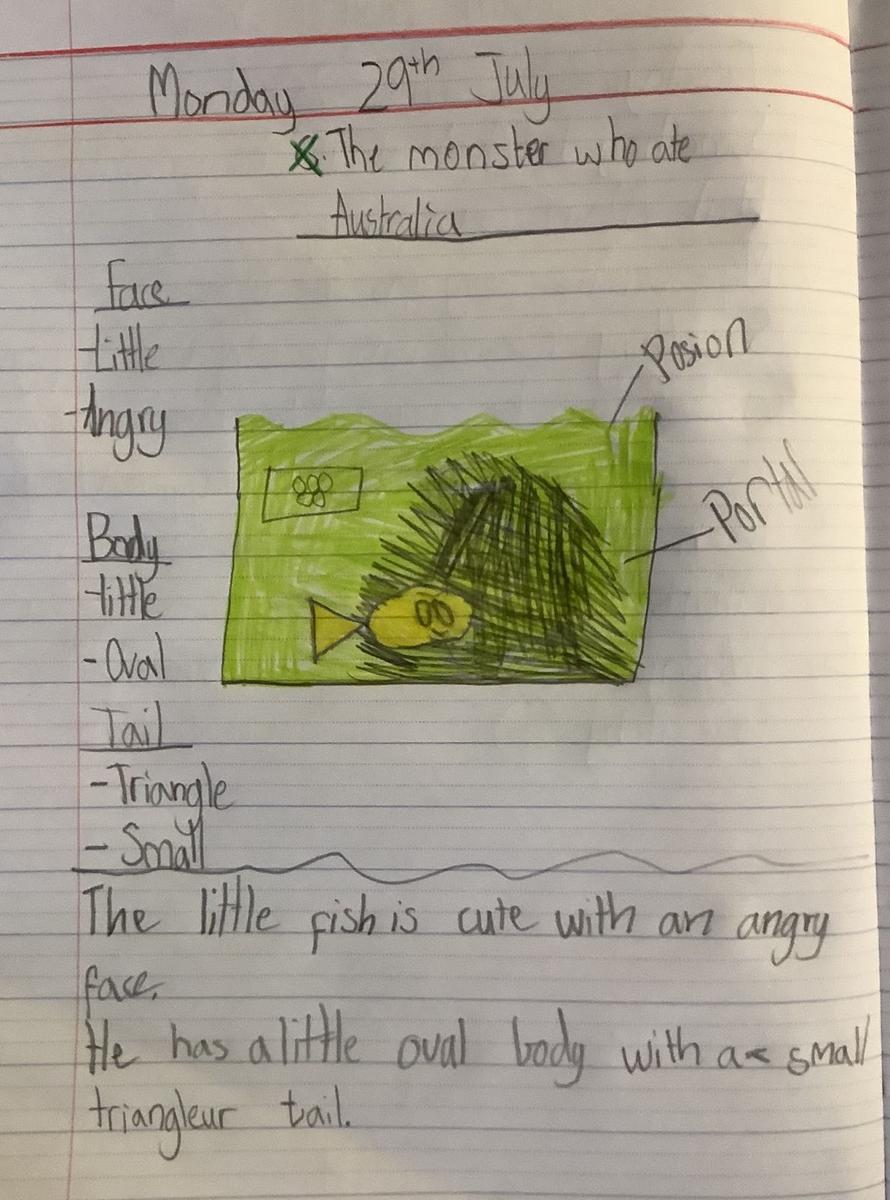 Monday 29th July
The monster who ate
Australia
Face
-little
-Angry
Posion
Portal
Body
-little
-Oval
Tail
-Triangle
- Small
The little fish is cute with an angry
face.
He has a little oval body with a small
triangleur tail.